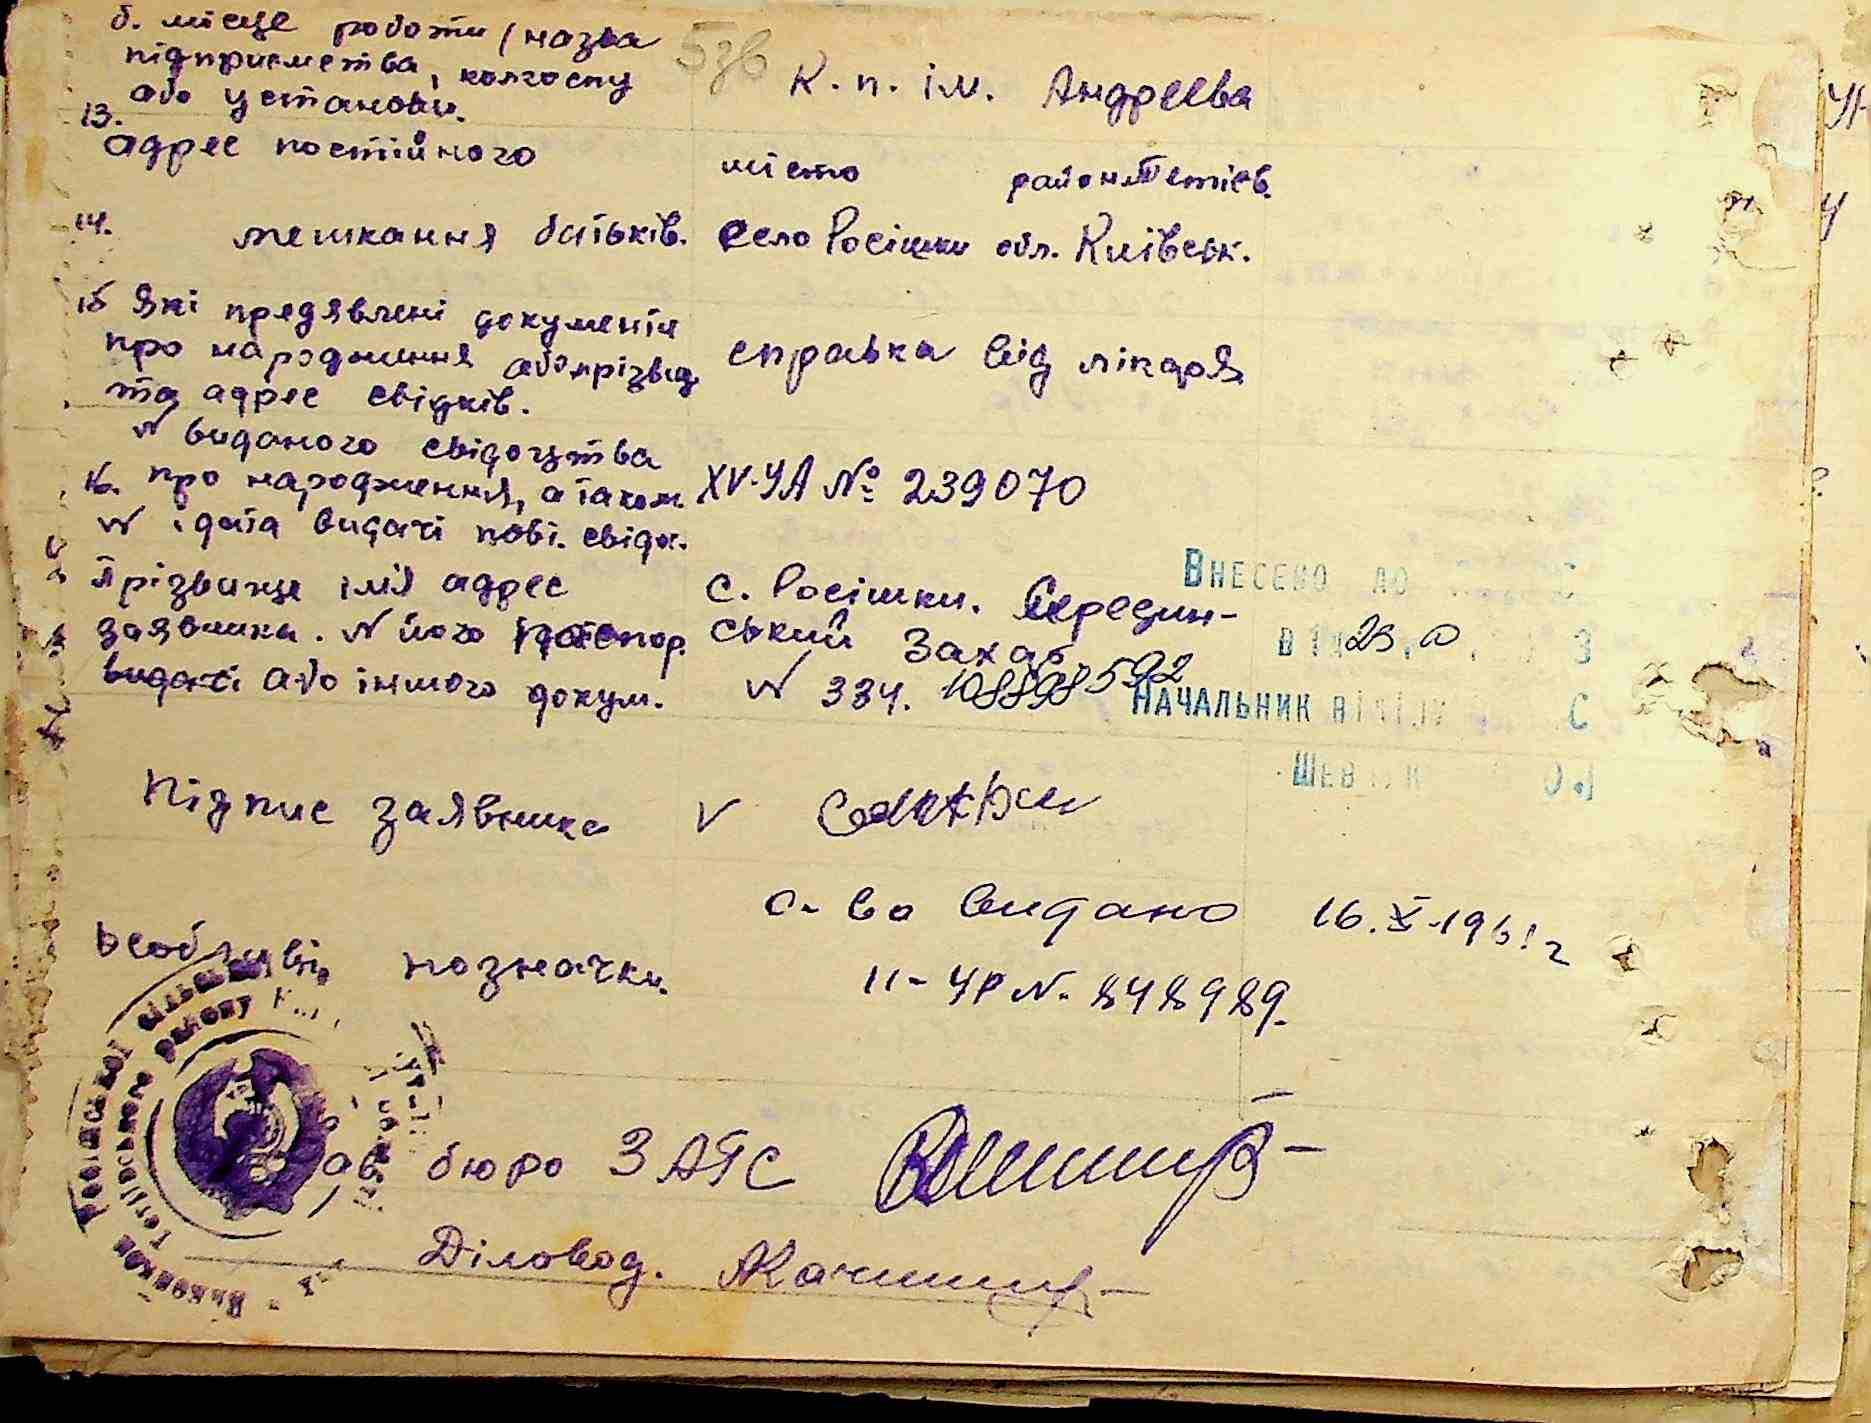 б. місце роботи (назва
підприємства, колгоспу
або установи.
К.п. ім. Андреєва
13.
адрес постійного
місто район Тетіїв.
14. мешкання батьків. село Росішки обл. Київськ.
15 Які предявлені документи
про народження або прізвищ
та адрес свідків.
справка від лікаря
№ виданого свідоцтва
16. про народження, а також
№ і дата видачі пові. свідоц.
XV-УА № 239070
Прізвище імя адрес
заявника. № його паспор.
видачі або іншого докум.
с. Росішки. Середин-
ський Захар
№ 334. 592
Внесено до
НАЧАЛЬНИК
Підпис заявника V
с-во видано 16.X.1961г
Особливі позначки.
II-УР N. 848989.
Зав бюро ЗАГС
Діловод.